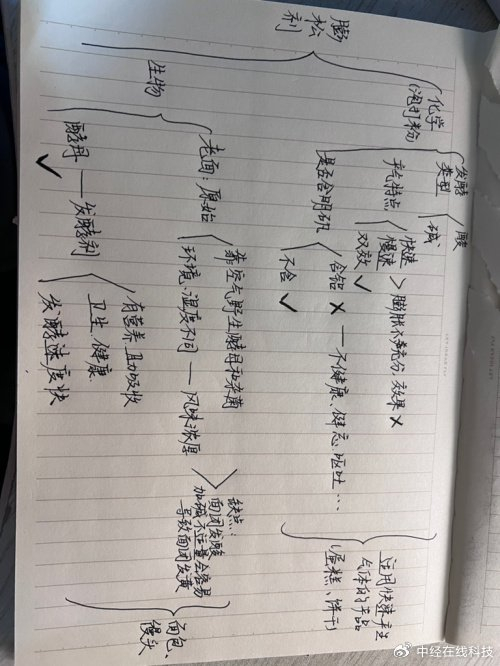 膨松剂
化学
(泡打粉)
发酵类型
酸
碱
产气特点
快速
慢速
膨胀不够充分 效果×
双效 ✓
是否含明矾
含铝 × — 不健康、健忘、呕吐…
不含 ✓
适用快速产生
气体的产品
(蛋糕、饼干)
生物
老面：原始
靠空气野生酵母和杂菌
环境、温度不同 — 风味浓厚
缺点：
面团发酸
加碱不适量会容易
导致面团发黄
酵母 — 发酵剂
✓
有营养 易吸收
卫生、健康
发酵速度快
面包、
馒头
@中经在线科技